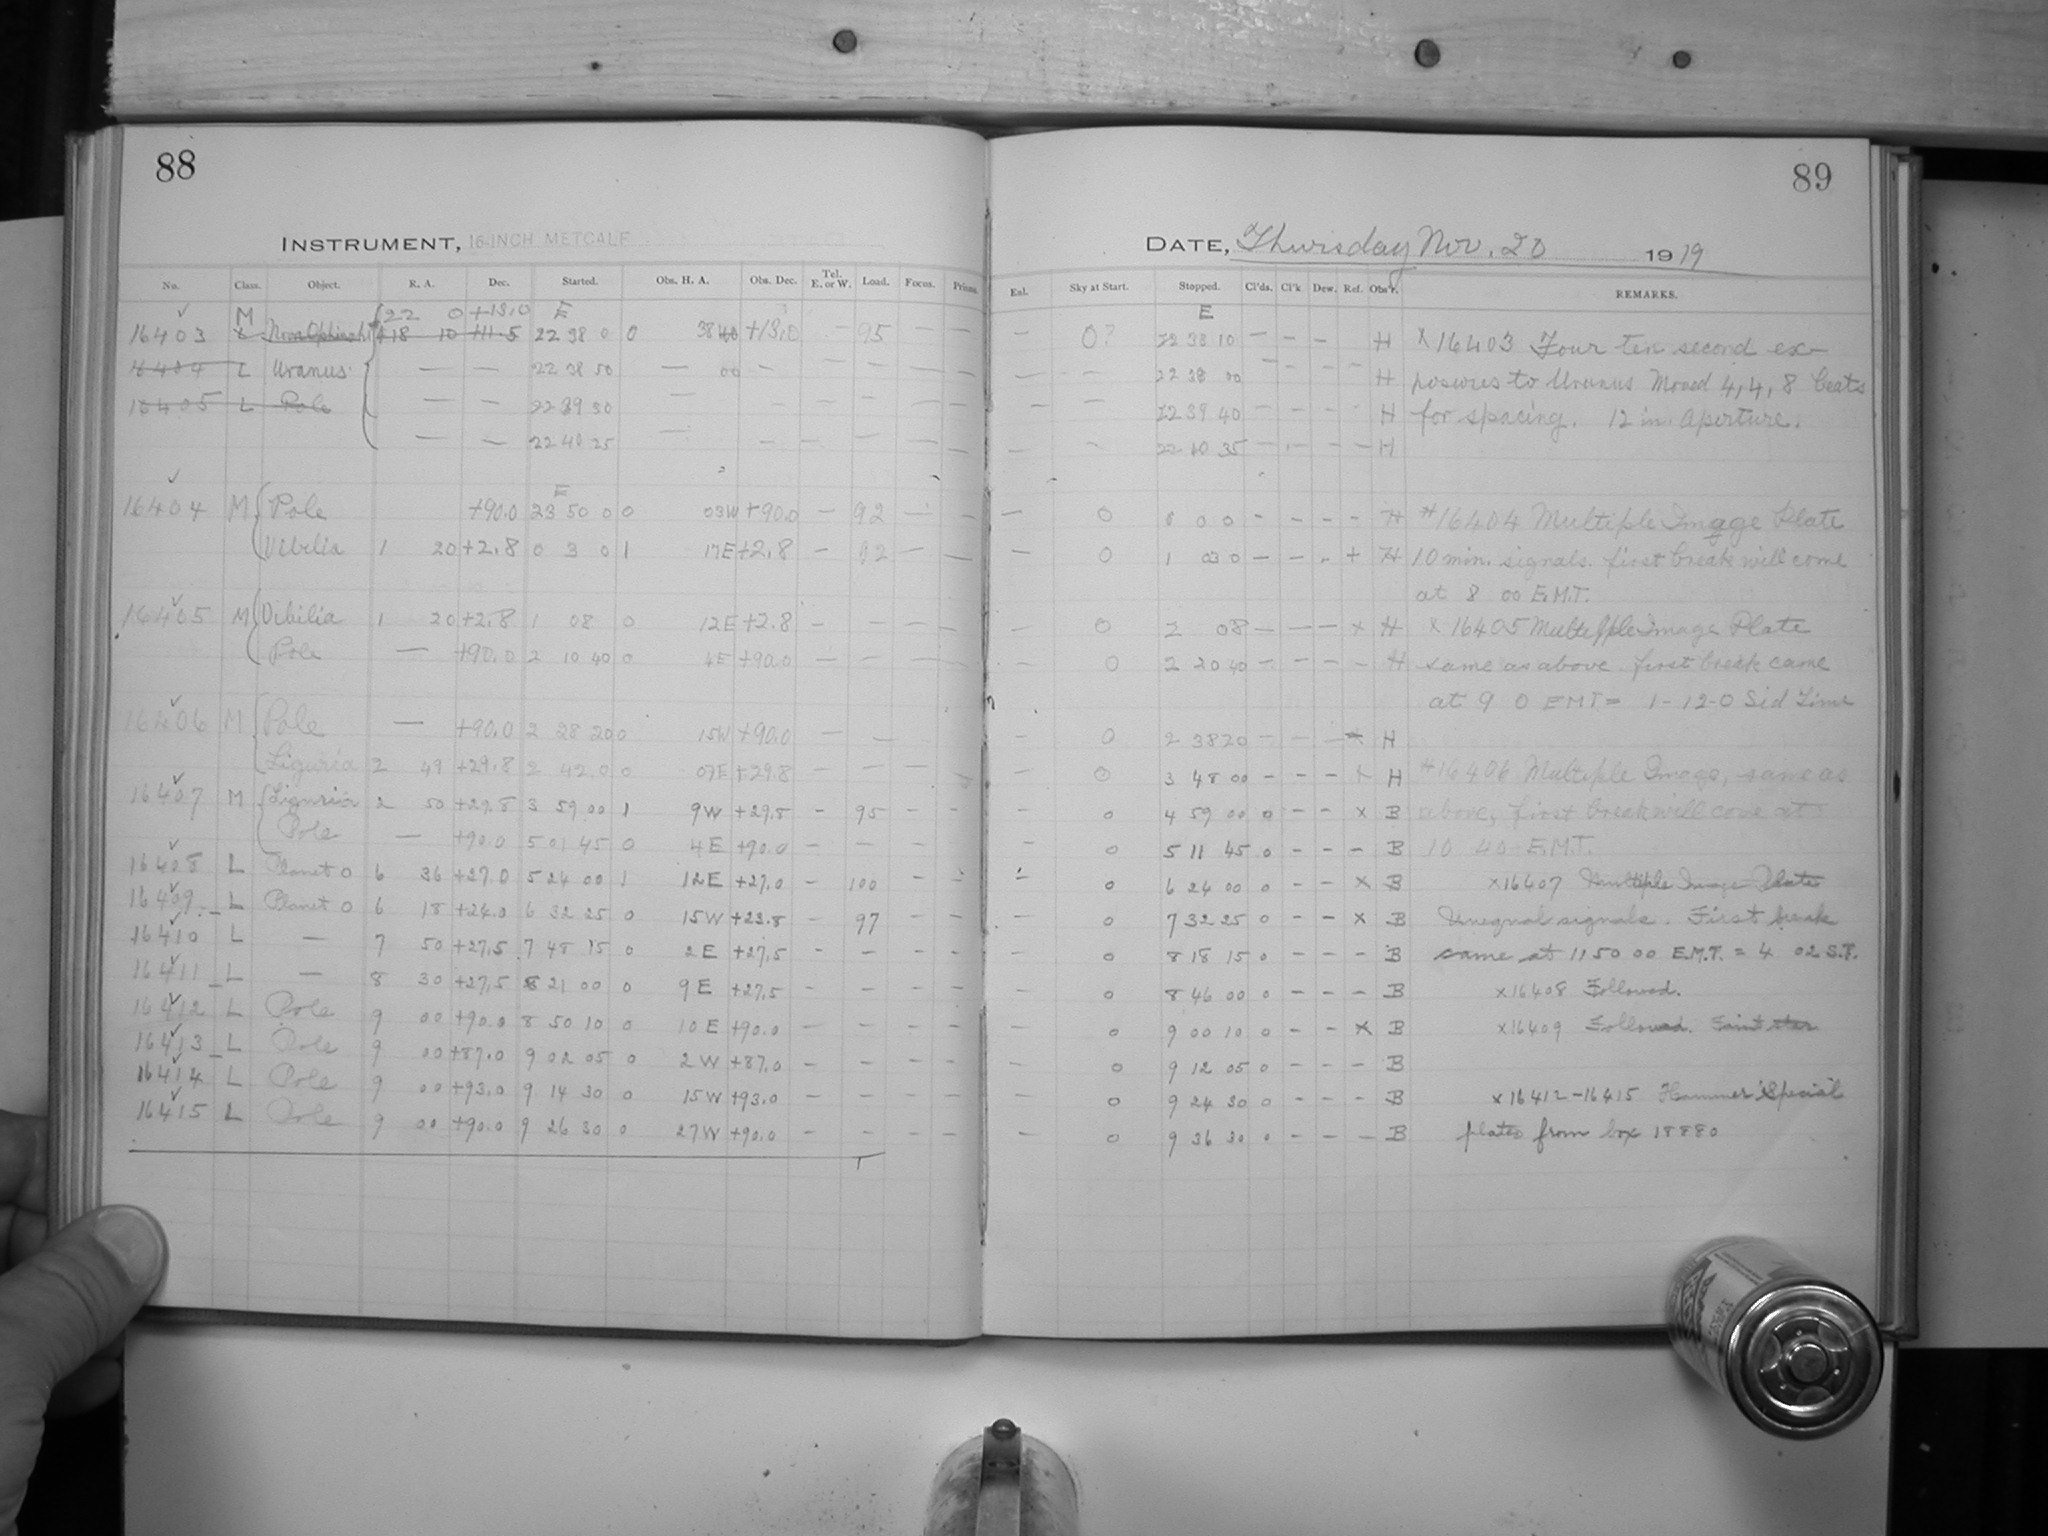 88
INSTRUMENT, 16-INCH METCALF
No. Class. Object. R. A. Dec. Started. Obs. H. A. Obs. Dec. Tel. E. or W. Load. Focus. Prisms.
M 22 0 +13.0 E
16403 L Nova Ophiuchi 18 10 +11.5 22 38 0 0 38 +13.0 — 95
16404 L Uranus — — 22 38 50 — 00 —
16405 L Pole — — 22 39 30
— — 22 40 25 — — — — — —
16404 M Pole +90.0 E 23 50 0 0 03W +90.0 — 92 — —
Vibilia 1 20 +2.8 0 3 0 1 17E +2.8 — 92 — —
16405 M Vibilia 1 20 +2.8 1 08 0 12E +2.8 — — — —
Pole — +90.0 2 10 40 0 4E +90.0 — — — —
16406 M Pole — +90.0 2 28 20 0 15W +90.0 — — — —
Liguria 2 49 +29.8 2 42 0 0 07E +29.8 — — — —
16407 M Liguria 2 50 +29.8 3 59 00 1 9W +29.8 – 95 – –
Pole — +90.0 5 01 45 0 4E +90.0 – – – –
16408 L Planet O 6 36 +27.0 5 24 00 1 12E +27.0 – 100 – –
16409 L Planet O 6 18 +24.0 6 32 25 0 15W +23.8 – 97 – –
16410 L — 7 50 +27.5 7 48 15 0 2E +27.5 – – – –
16411 L — 8 30 +27.5 8 21 00 0 9E +27.5 – – – –
16412 L Pole 9 00 +90.0 8 50 10 0 10E +90.0 – – – –
16413 L Pole 9 00 +87.0 9 02 05 0 2W +87.0 – – – –
16414 L Pole 9 00 +93.0 9 14 30 0 15W +93.0 – – – –
16415 L Pole 9 00 +90.0 9 26 30 0 27W +90.0 – – – –
89
DATE, Thursday Nov. 20 1919
Enl. Sky at Start. Stopped. Cl'ds. Cl'k Dew. Ref. Obs'r. REMARKS.
E
— 0? 22 38 10 — — — H x16403 Four ten second ex-
— — 22 39 00 — — — — H posures to Uranus Moved 4, 4, 8 beats
— — 22 39 40 — — — — H for spacing. 12 in. aperture.
— – 22 40 35 — — — — H
— 0 0 0 0 – – – – H #16404 Multiple Image Plate
— 0 1 03 0 — — – + H 10 min. signals. first break will come
at 8 00 E.M.T.
— 0 2 08 — — — x H x 16405 Multiple Image Plate
— 0 2 20 40 — — — – H same as above. first break came
at 9 0 EMT = 1-12-0 Sid Time
— 0 2 38 20 — — — x H
— 0 3 48 00 – – – x H #16406 Multiple Image, same as
– 0 4 59 00 0 – – x B above, first break will come at
– 0 5 11 45 0 – – – B 10 40 E.M.T.
– 0 6 24 00 0 – – x B x16407 Multiple Image Plate
– 0 7 32 25 0 – – x B Unequal signals. First break
– 0 8 18 15 0 – – – B came at 11 50 00 E.M.T. = 4 02 S.T.
– 0 8 46 00 0 – – – B x16408 Followed.
– 0 9 00 10 0 – – x B x16409 Followed. Faint star
– 0 9 12 05 0 – – – B
– 0 9 24 30 0 – – – B x16412-16415 Hammer Special
– 0 9 36 30 0 – – – B plates from box 18880